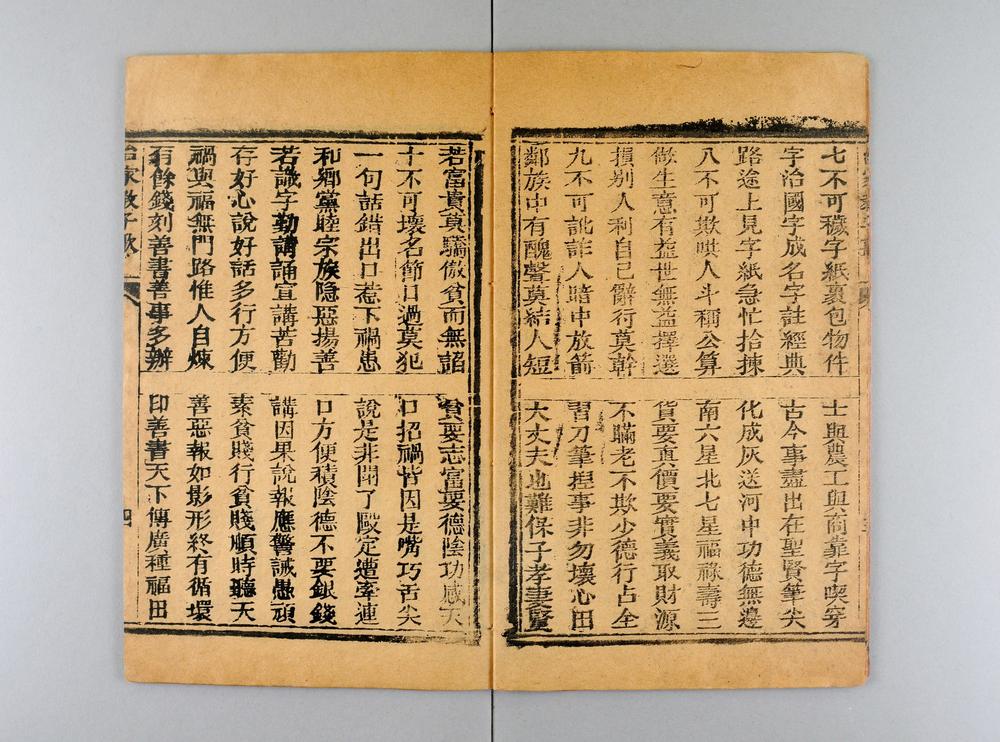 七不可穢字紙裹包物件
士與農工與商靠字喫穿
字治國字成名字註經典
古今事盡出在聖賢筆尖
路途上見字紙急忙拾揀
化成灰送河中功德無邊
八不可欺哄人斗稱公算
南六星北七星福祿壽三
做生意有益世無益擇選
貨要真價要實義取財源
損别人利自己辭行莫幹
不瞞老不欺少德行占全
九不可訛詐人暗中放箭
習刀筆捏事非勿壞心田
鄰族中有醜聲莫結人短
大丈夫也難保子孝妻賢
若富貴莫驕傲貧而無諂
貧要志富要德陰功感天
十不可壞名節口過莫犯
口招禍皆因是嘴巧舌尖
一句話錯出口惹下禍患
說是非閙了毆定遭牽連
和鄉黨睦宗族隐惡揚善
口方便積陰德不要銀錢
若識字勤講誦宣講苦勸
講因果說報應警誡愚頑
存好心說好話多行方便
素貧賤行貧賤順時聽天
禍與福無門路惟人自煉
善惡報如影形終有循環
有餘錢刻善書善事多辦
印善書天下傳廣種福田
治家教子歌
四